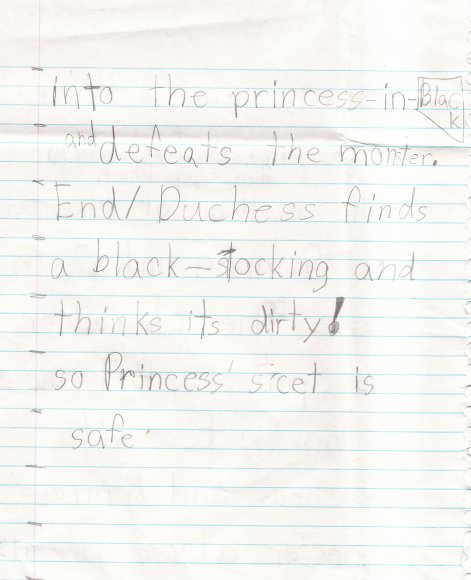 into the princess-in-Black
and defeats the monster.
End/ Duchess finds
a black-stocking and
thinks its dirty!
so Princess' s'cet is
safe.